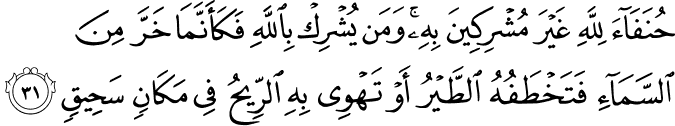 حُنَفَآءَ لِلَّهِ غَيْرَ مُشْرِكِينَ بِهِۦ ۚ وَمَن يُشْرِكْ بِٱللَّهِ فَكَأَنَّمَا خَرَّ مِنَ
ٱلسَّمَآءِ فَتَخْطَفُهُ ٱلطَّيْرُ أَوْ تَهْوِى بِهِ ٱلرِّيحُ فِى مَكَانٍ سَحِيقٍ ٣١